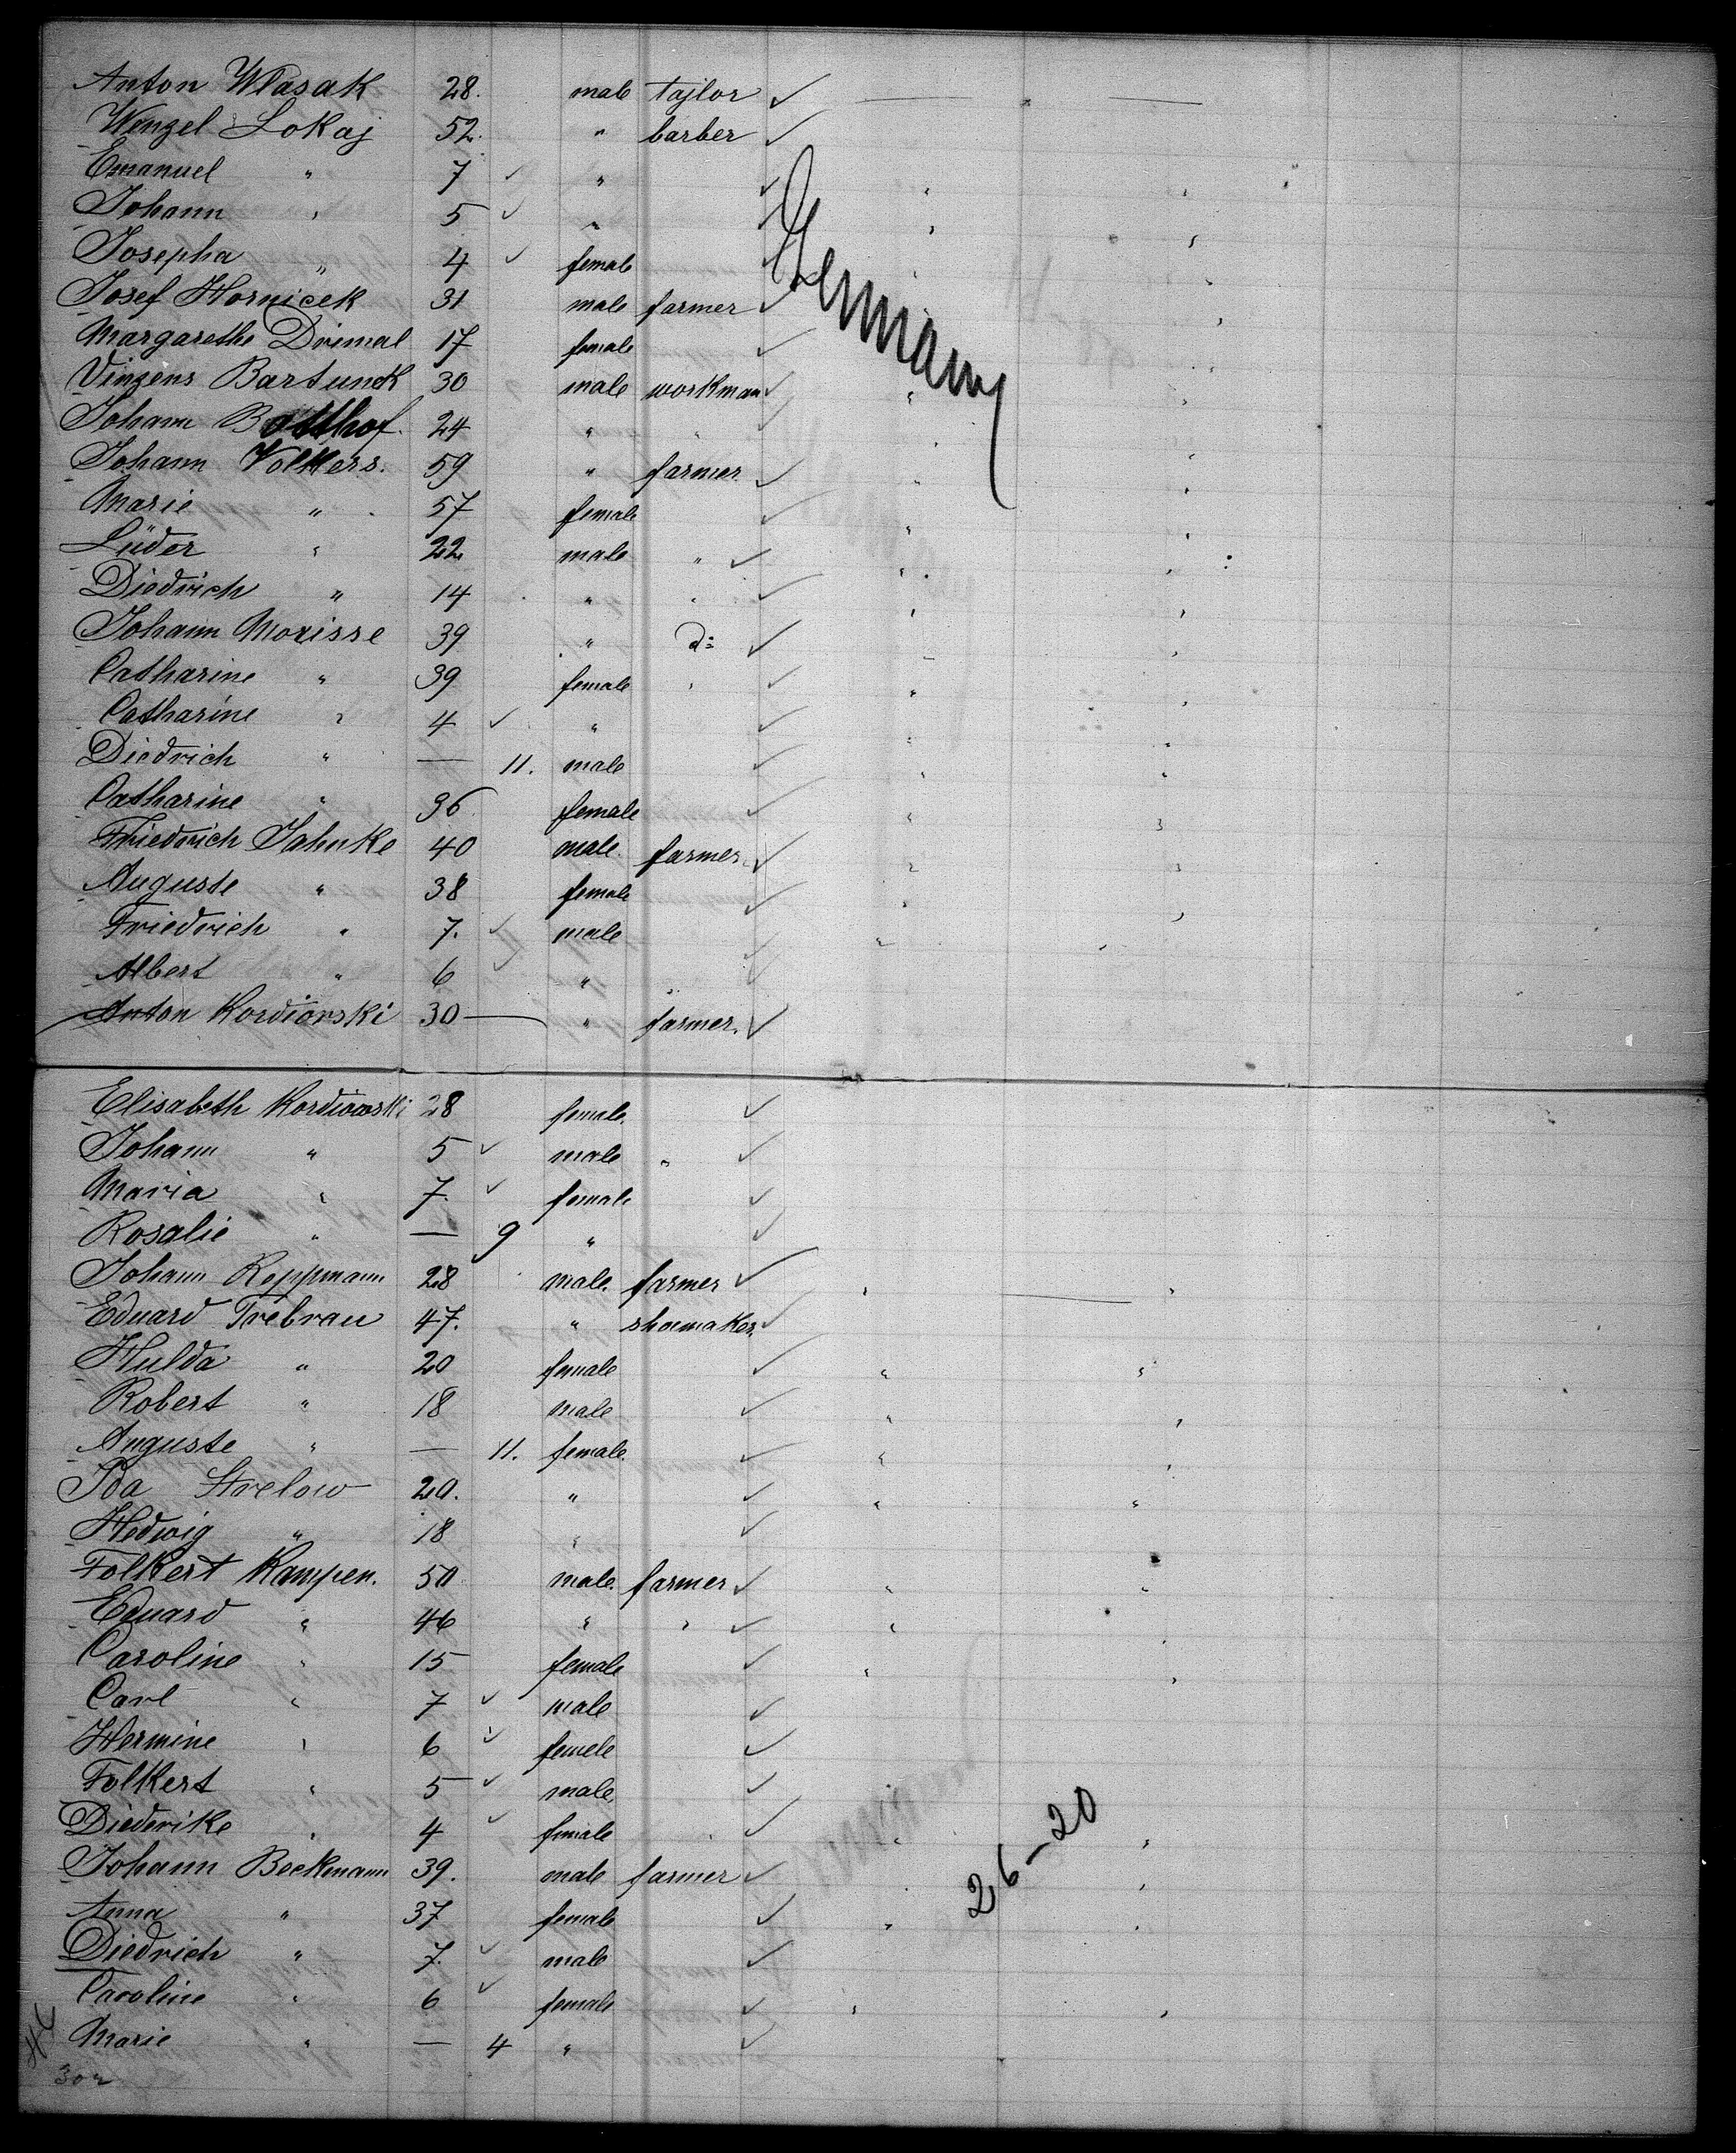 Anton Wlasak 28. male tajlor ✓
Wenzel Lokaj 52. " barber ✓
Emanuel " 7 ✓ " ✓
Johann " 5 ✓ " ✓
Josepha " 4 ✓ female ✓
Josef Hornicek 31 male farmer ✓
Germany
Margarethe Drimal 17 female ✓
Vinzens Bartunek 30 male workman ✓
Johann Botthof. 24 " " ✓
Johann Volkers. 59 " farmer. ✓
Marie " 57 female ✓
Lüder " 22 male " ✓
Diedrich " 14 " " ✓
Johann Morisse 39 " do ✓
Catharine " 39 female " ✓
Catharine " 4 ✓ " ✓
Diedrich " — 11. male ✓
Catharine " 36 female ✓
Friedrich Jahnke 40 male. farmer. ✓
Auguste " 38 female ✓
Friedrich " 7. ✓ male ✓
Albert " 6 ✓ " ✓
Anton Kordiowski 30 — " farmer. ✓
Elisabeth Kordiowski 28 female. ✓
Johann " 5 ✓ male " ✓
Maria " 7. ✓ female ✓
Rosalie " — 9 " ✓
Johann Reppmann 28 male. farmer ✓
Eduard Trebrau 47. " shoemaker. ✓
Hulda " 20 female ✓
Robert " 18 male ✓
Auguste " — 11. female. ✓
Ida Strelow 20. " ✓
Hedwig " 18 " ✓
Folkert Kampen. 50 male. farmer ✓
Eduard " 46 " " ✓
Caroline " 15 female ✓
Carl " 7 ✓ male ✓
Hermine " 6 ✓ female ✓
Folkert " 5 ✓ male, ✓
Diederike " 4 ✓ female ✓
26-20
Johann Beckmann 39. male farmer ✓
Anna " 37 female ✓
Diedrich " 7. ✓ male ✓
Caroline " 6 ✓ female ✓
Marie " — 4 " ✓